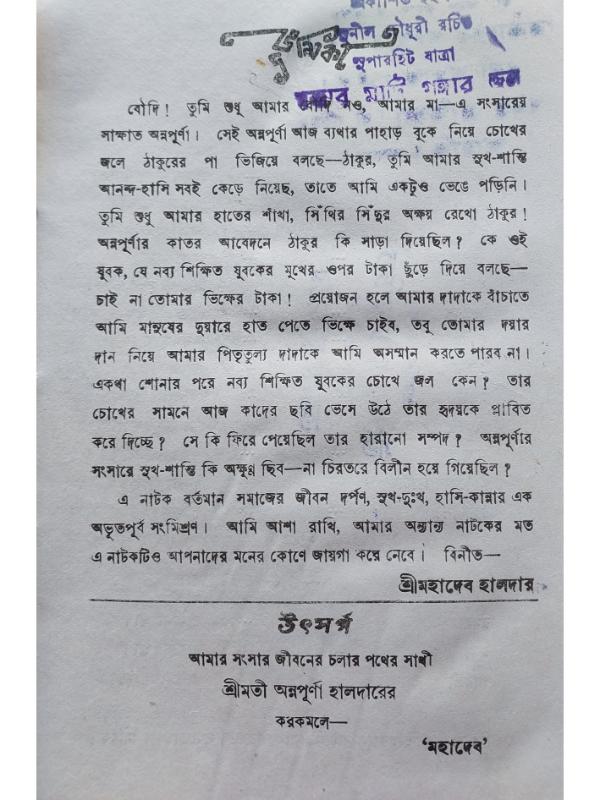 প্রকাশিত হইল
সুনীল চৌধুরী রচিত
সুপারহিট যাত্রা
গঙ্গার মাটি গঙ্গার জল
ভূমিকা
বৌদি! তুমি শুধু আমার বৌদি নও, আমার মা—এ সংসারের
সাক্ষাত অন্নপূর্ণা। সেই অন্নপূর্ণা আজ ব্যথার পাহাড় বুকে নিয়ে চোখের
জলে ঠাকুরের পা ভিজিয়ে বলছে—ঠাকুর, তুমি আমার সুখ-শান্তি
আনন্দ-হাসি সবই কেড়ে নিয়েছ, তাতে আমি একটুও ভেঙে পড়িনি।
তুমি শুধু আমার হাতের শাঁখা, সিঁথির সিঁদুর অক্ষয় রেখো ঠাকুর!
অন্নপূর্ণার কাতর আবেদনে ঠাকুর কি সাড়া দিয়েছিল? কে ওই
যুবক, যে নব্য শিক্ষিত যুবকের মুখের ওপর টাকা ছুঁড়ে দিয়ে বলছে—
চাই না তোমার ভিক্ষের টাকা! প্রয়োজন হলে আমার দাদাকে বাঁচাতে
আমি মানুষের দুয়ারে হাত পেতে ভিক্ষে চাইব, তবু তোমার দয়ার
দান নিয়ে আমার পিতৃতুল্য দাদাকে আমি অসম্মান করতে পারব না।
একথা শোনার পরে নব্য শিক্ষিত যুবকের চোখে জল কেন? তার
চোখের সামনে আজ কাদের ছবি ভেসে উঠে তার হৃদয়কে প্লাবিত
করে দিচ্ছে? সে কি ফিরে পেয়েছিল তার হারানো সম্পদ? অন্নপূর্ণার
সংসারে সুখ-শান্তি কি অক্ষুন্ন ছিল—না চিরতরে বিলীন হয়ে গিয়েছিল?
এ নাটক বর্তমান সমাজের জীবন দর্পণ, সুখ-দুঃখ, হাসি-কান্নার এক
অভূতপূর্ব সংমিশ্রণ। আমি আশা রাখি, আমার অন্যান্য নাটকের মত
এ নাটকটিও আপনাদের মনের কোণে জায়গা করে নেবে। বিনীত—
শ্রীমহাদেব হালদার
উৎসর্গ
আমার সংসার জীবনের চলার পথের সাথী
শ্রীমতী অন্নপূর্ণা হালদারের
করকমলে—
'মহাদেব'